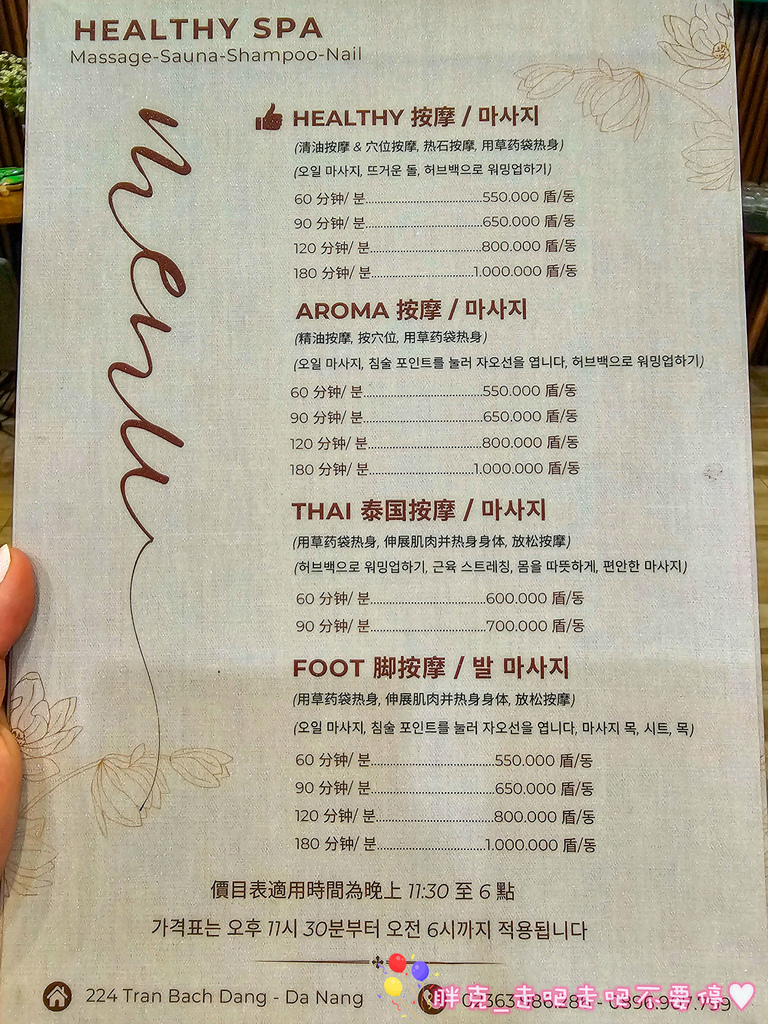 HEALTHY SPA
Massage-Sauna-Shampoo-Nail
menu
HEALTHY 按摩 / 마사지
(清油按摩 & 穴位按摩, 热石按摩, 用草药袋热身)
(오일 마사지, 뜨거운 돌, 허브백으로 워밍업하기)
60 分钟/ 분..................................550.000 盾/동
90 分钟/ 분..................................650.000 盾/동
120 分钟/ 분.................................800.000 盾/동
180 分钟/ 분...............................1.000.000 盾/동
AROMA 按摩 / 마사지
(精油按摩, 按穴位, 用草药袋热身)
(오일 마사지, 침술 포인트를 눌러 자오선을 엽니다, 허브백으로 워밍업하기)
60 分钟/ 분...................................550.000 盾/동
90 分钟/ 분...................................650.000 盾/동
120 分钟/ 분..................................800.000 盾/동
180 分钟/ 분................................1.000.000 盾/동
THAI 泰国按摩 / 마사지
(用草药袋热身, 伸展肌肉并热身身体, 放松按摩)
(허브백으로 워밍업하기, 근육 스트레칭, 몸을 따뜻하게, 편안한 마사지)
60 分钟/ 분..................................600.000 盾/동
90 分钟/ 분..................................700.000 盾/동
FOOT 脚按摩 / 발 마사지
(用草药袋热身, 伸展肌肉并热身身体, 放松按摩)
(오일 마사지, 침술 포인트를 눌러 자오선을 엽니다, 마사지 목, 시트, 목)
60 分钟/ 분.....................................550.000 盾/동
90 分钟/ 분.....................................650.000 盾/동
120 分钟/ 분...................................800.000 盾/동
180 分钟/ 분.................................1.000.000 盾/동
價目表適用時間為晚上 11:30 至 6 點
가격표는 오후 11시 30분부터 오전 6시까지 적용됩니다
224 Tran Bach Dang - Da Nang
胖克_走吧走吧不要停♥